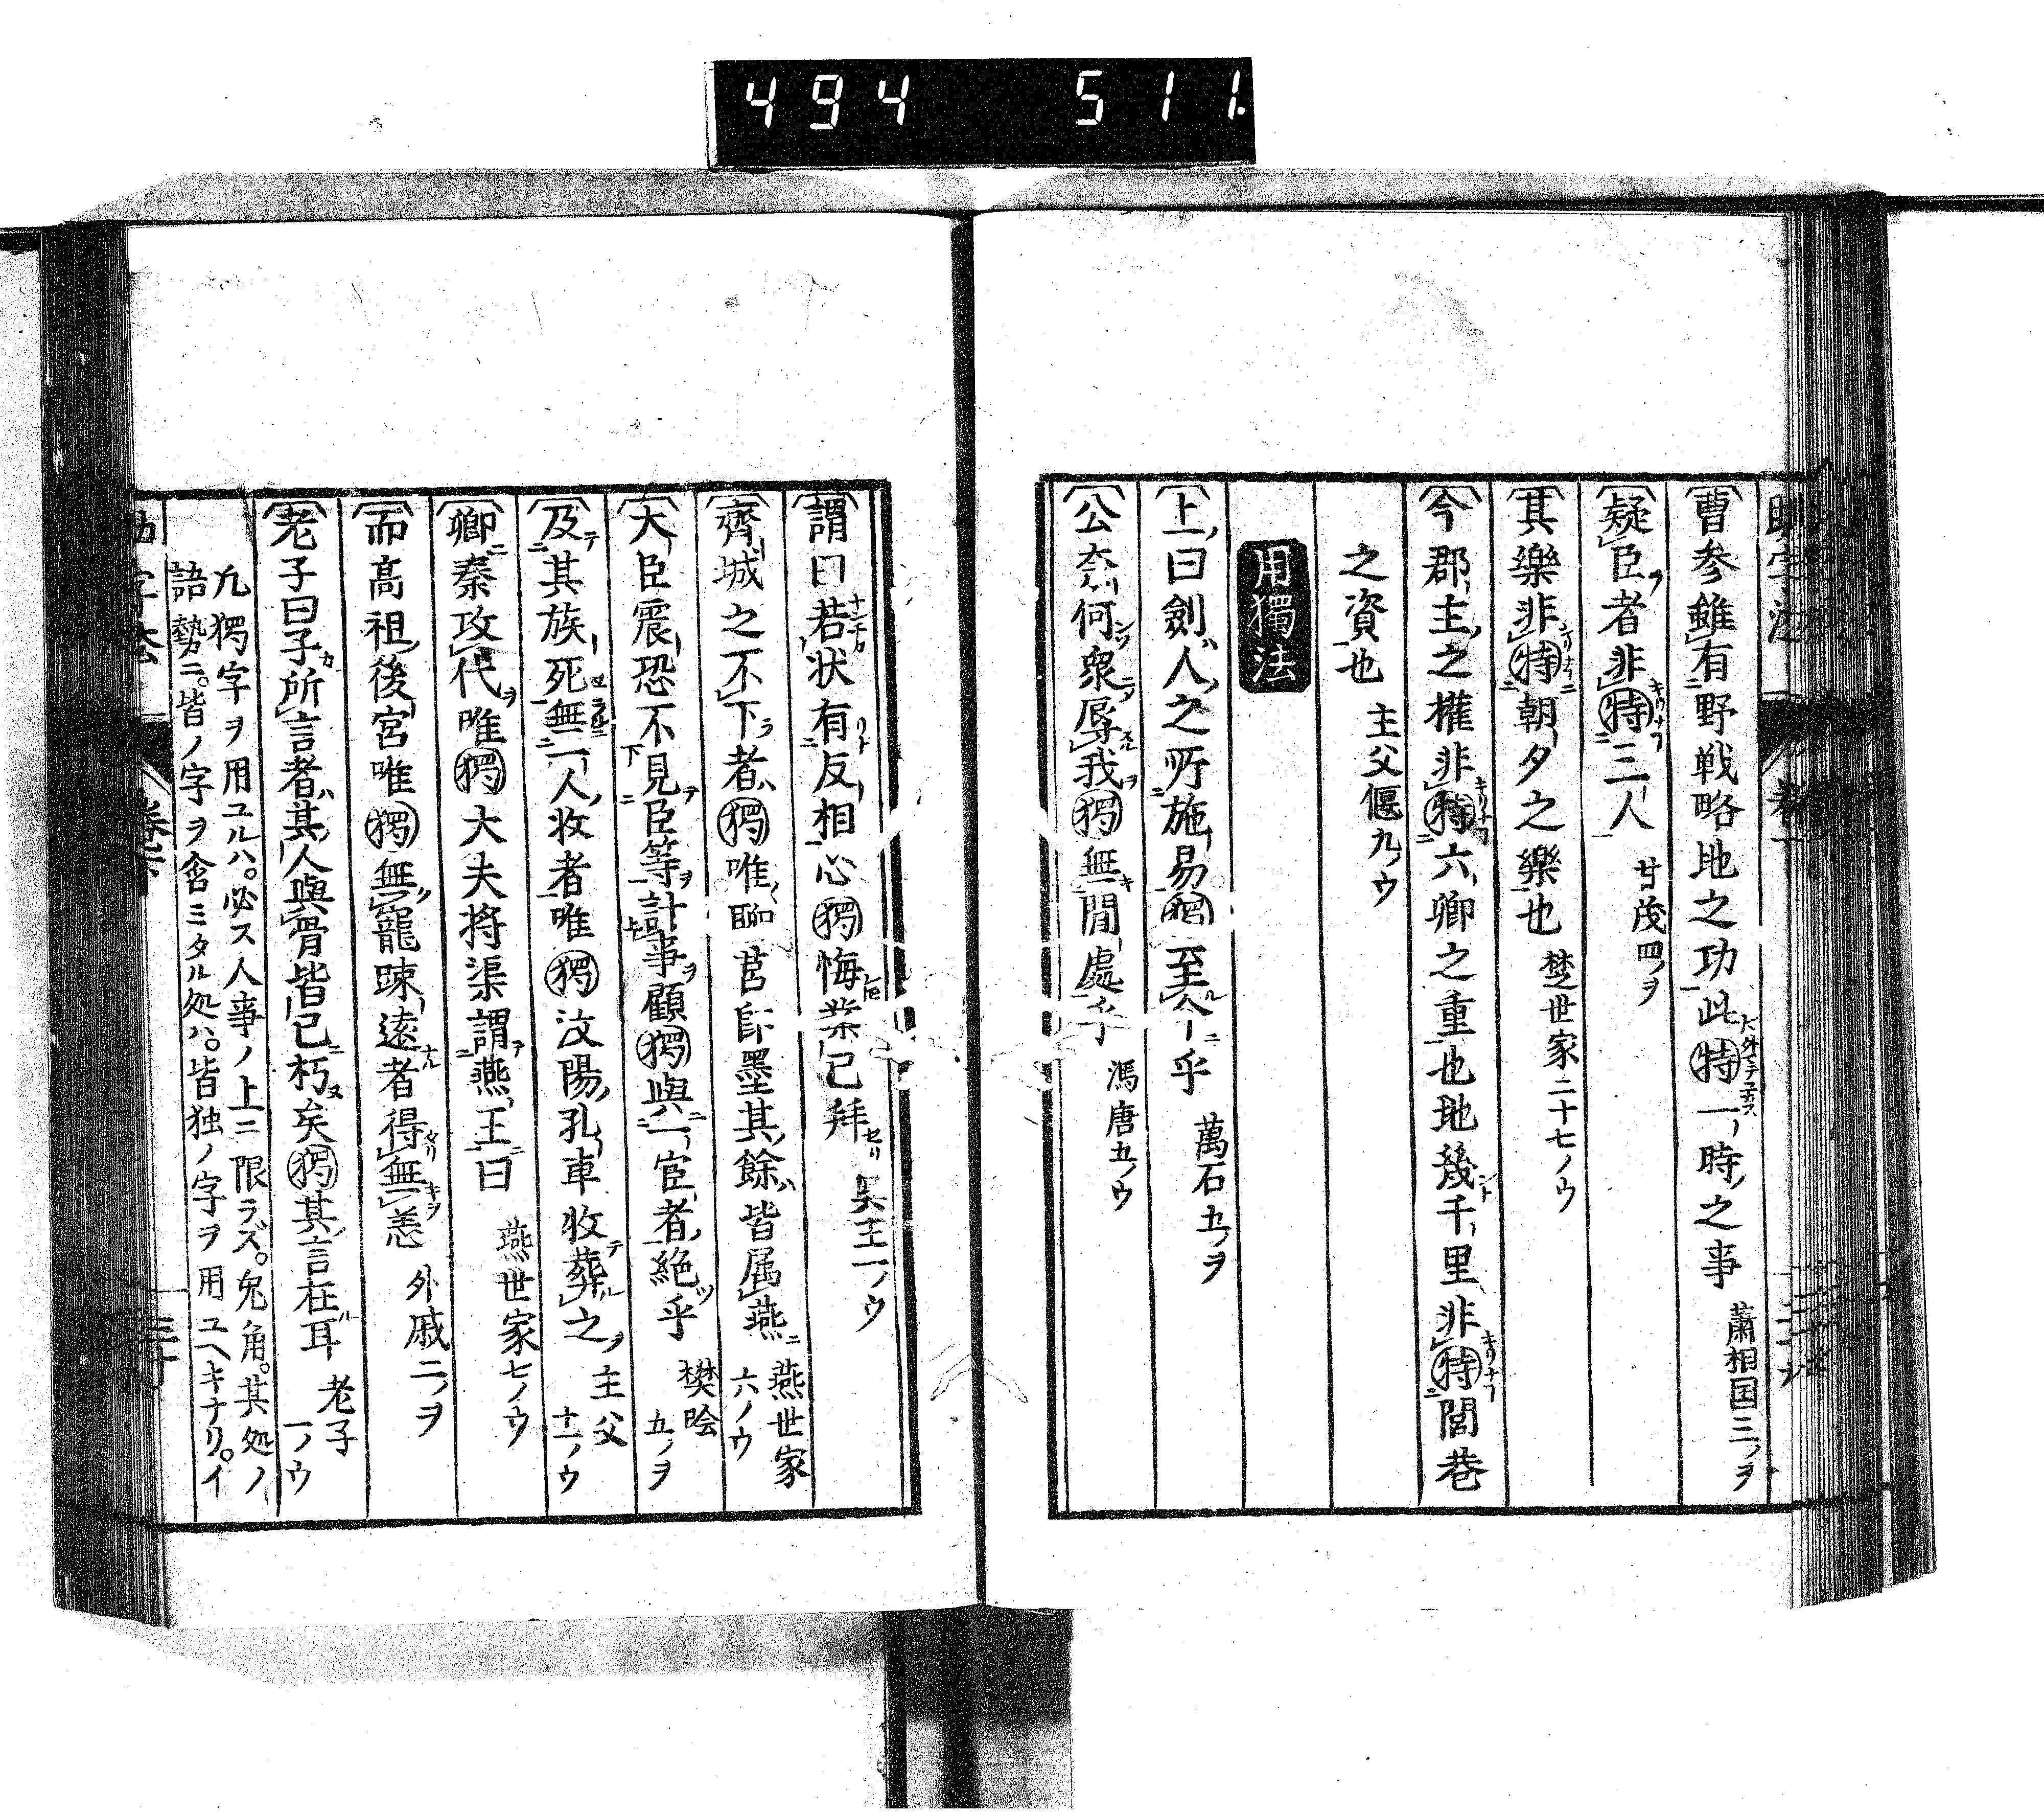 494 511.
曹参雖有野戦略地之功此特一時之事 蕭相国三ノヲ
疑臣者非特三人 甘茂四ノヲ
其樂非特朝夕之樂也 楚世家二十七ノウ
今郡主之権非特六卿之重也地幾千里非特閭巷
之資也 主父偃九ノウ
用獨法
上曰劍人之所施易獨至今乎 萬石五ノヲ
公奈何衆辱我獨無間處乎 馮唐五ノウ
謂曰若状有反相心獨悔業已拜 呉王一ノウ
齊城之不下者獨唯聊莒即墨其餘皆属燕 燕世家六ノウ
大臣震恐不見臣等計事顧獨與一宦者絶乎 樊噲五ノヲ
及其族死無一人收者唯獨洨陽孔車收葬之 主父十一ノウ
卿秦攻代唯獨大夫将渠謂燕王曰 燕世家七ノウ
而高祖後宮唯獨無寵踈遠者得無恙 外戚二ノヲ
老子曰子所言者其人與骨皆已朽矣獨其言在耳 老子一ノウ
凢獨字ヲ用ユルハ。必ス人事ノ上ニ限ラズ。兔角。其処ノ
語勢ニ。皆ノ字ヲ含ミタル処ハ。皆独ノ字ヲ用ユヘキナリ。イ